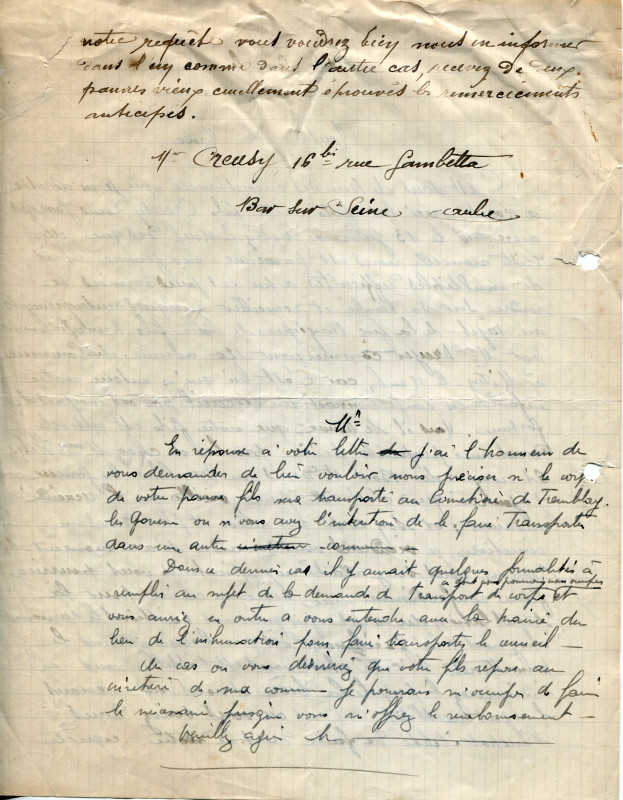 notre requêt vous voudrez bien nous en informer
dans l'un comme dans l'autre cas, recevez de deux
pauvres vieux cruellement éprouvés les remerciements
anticipés.
Mr Creusy, 16 bis rue Gambetta
Bar sur Seine aube
Mr
En réponse à votre lettre j'ai l'honneur de
vous demander de bien vouloir nous préciser si le corps
de votre pauvre fils sera transporté au Cimetière de Tremblay.
les Gonesse ou si vous avez l'intention de le faire Transporter
dans une autre commune
Dans ce dernier cas il y aurait quelques formalités à
remplir au sujet de la demande de transport de corps et
vous auriez en outre a vous entendre avec la mairie du
lieu de l'inhumation pour faire transporter le cercueil —
Au cas ou vous désireriez que votre fils repose au
cimetière de ma commune je pourrais m'occuper de faire
le nécessaire puisque vous m'offrez le remboursement —
Veuillez agréer